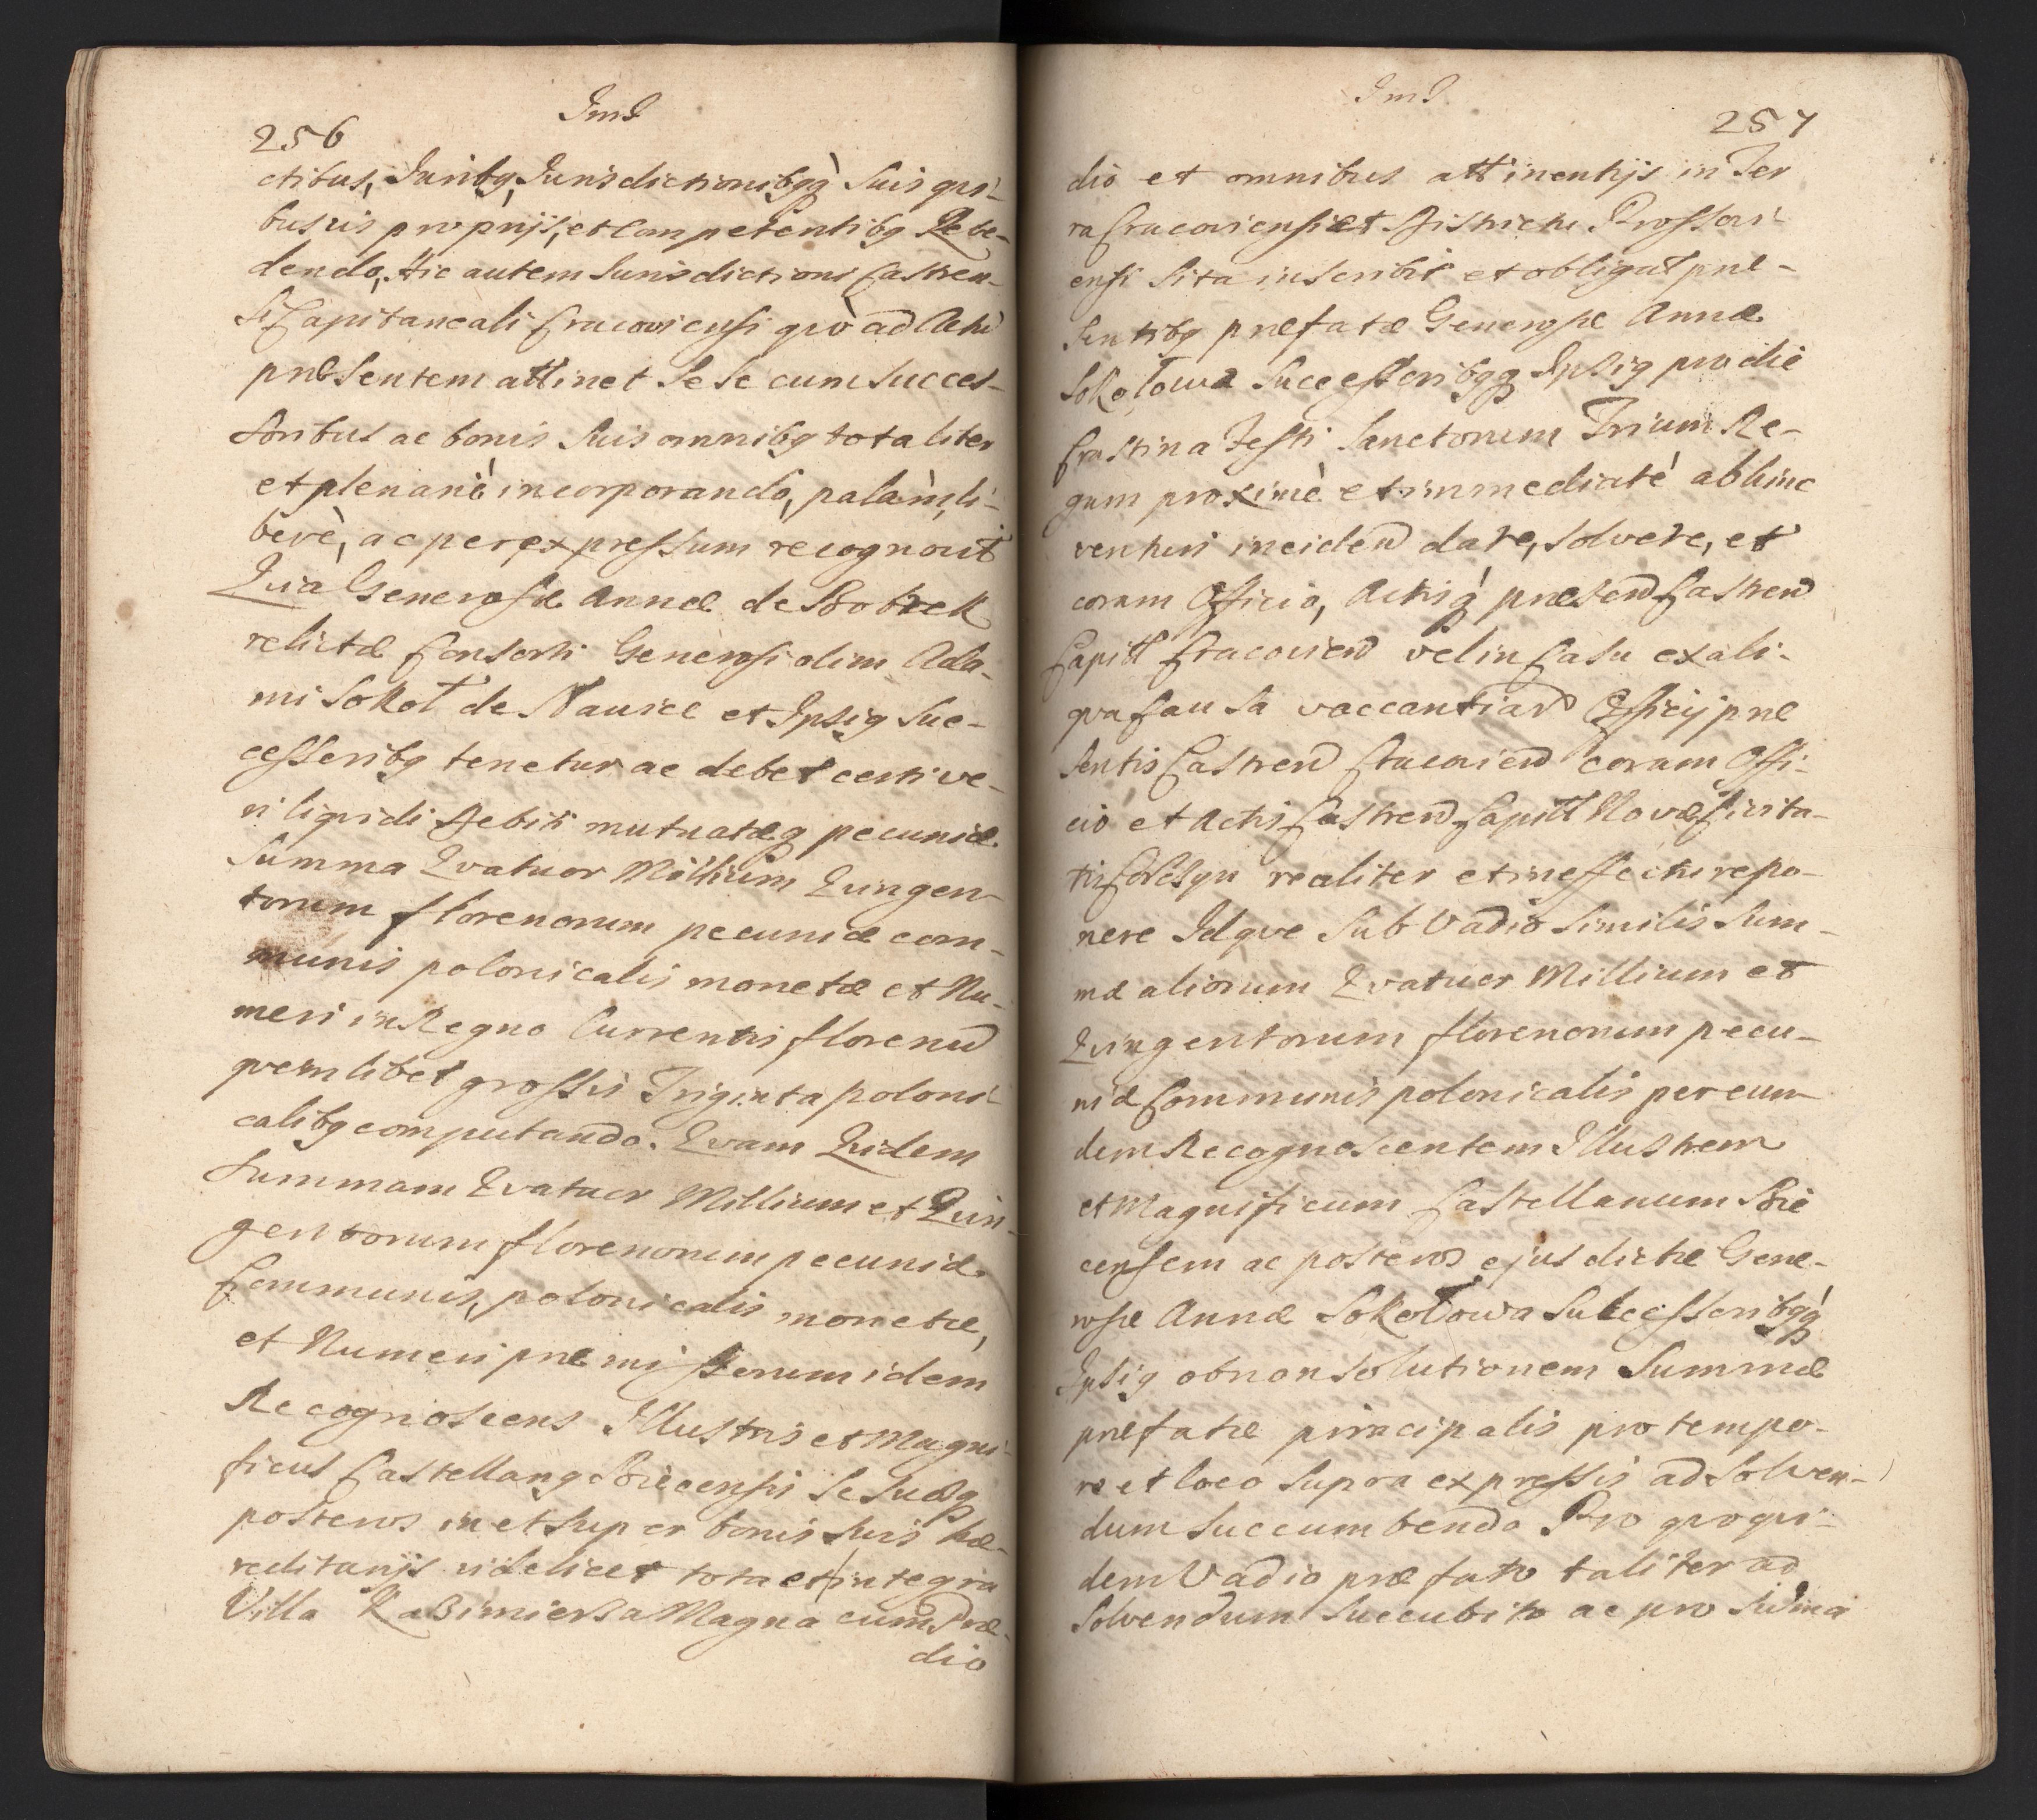 Jmd
256
ctibus, Juribq, Jurisdictionibqq suis qui-
busvis proprijs, et competentibq Rece-
dendo, Hic autem Jurisdictioni Castren-
si Capitaneali Cracoviensi qvò ad Actũ
præsentem attinet se se cum succes-
soribus ac bonis suis omnibq totaliter
et plenariè incorporando, palàm, li-
berè, ac per expressum recognovit
Qvia Generosæ Annæ de Bobrek
relictæ Consorti Generosi olim Ada-
mi Sokoł de et Ipsiq suc-
cessoribq tenetur ac debet certi ve-
ri liqvidi debiti mutuatæq pecuniæ
summa Qvatuor Millium Qvingen-
torum florenorum pecuniæ com-
munis polonicalis monetæ et Nu-
meri in Regno Currentis florenũ
qvemlibet grossis Triginta poloni-
calibq computando. Qvam Qvidem
Summam Qvatuor Millium et Qvin-
gentorum florenorum pecuniæ
Communis, polonicalis monetæ,
et Numeri præmissorum idem
Recognoscens Illustris et Magni-
ficus Castellanq Biecensis se suosq
posteros in et super bonis suis hæ-
reditarijs videlicet tota et integra
Villa Kazimierza Magna cum Præ-
dio
Jmd
257
dio et omnibus attinentijs in Ter
ra Cracoviensi et districtu Prossovi-
ensi sita inscribit et obligat præ-
sentibq præfatæ Generosæ Annæ
Sokołowa Successoribqq Ipsiq pro die
Crastina Festi Sanctorum Trium Re-
gum proximè et immediatè abhinc
venturi inciden dare, solvere, et
coram Officio, Actisq præsen Castren
Capitl Cracovien vel in Casu ex ali-
qva Causa vaccantiar Officij præ
sentis Castren Cracovien coram Offi-
cio et Actis Castren Capitl Novæ Civita-
tis Corczyn realiter et in effectu repo-
nere Idqve sub Vadio similis sum-
mæ aliorum Qvatuor Millium et
Qvingentorum florenorum pecu-
niæ Communis polonicalis per eun-
dem Recognoscentem Illustrem
et Magnificum Castellanum Bie
censem ac posteros ejus dictæ Gene-
rosæ Annæ Sokołowa Successoribqq
Ipsiq ob non solutionem Summæ
præfatæ principalis pro tempo-
re et loco supra expressis ad solven-
dum succumbendo Pro qvoqvi-
dem Vadio præfato taliter ad
solvendum succubito ac pro summa